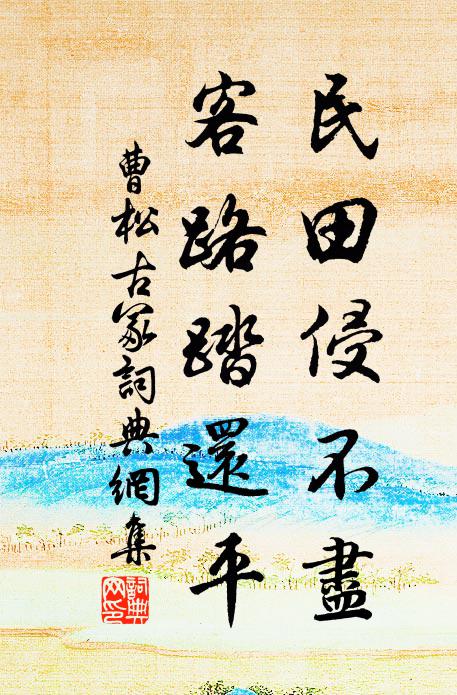 民田侵不盡
客路踏還平
曹松古冢詞典網集
詞典网印